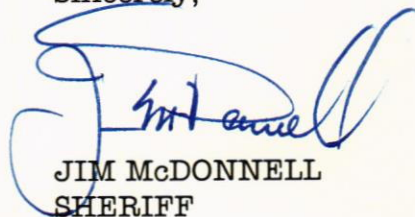 Sincerely,
J. McDonnell
JIM McDONNELL
SHERIFF